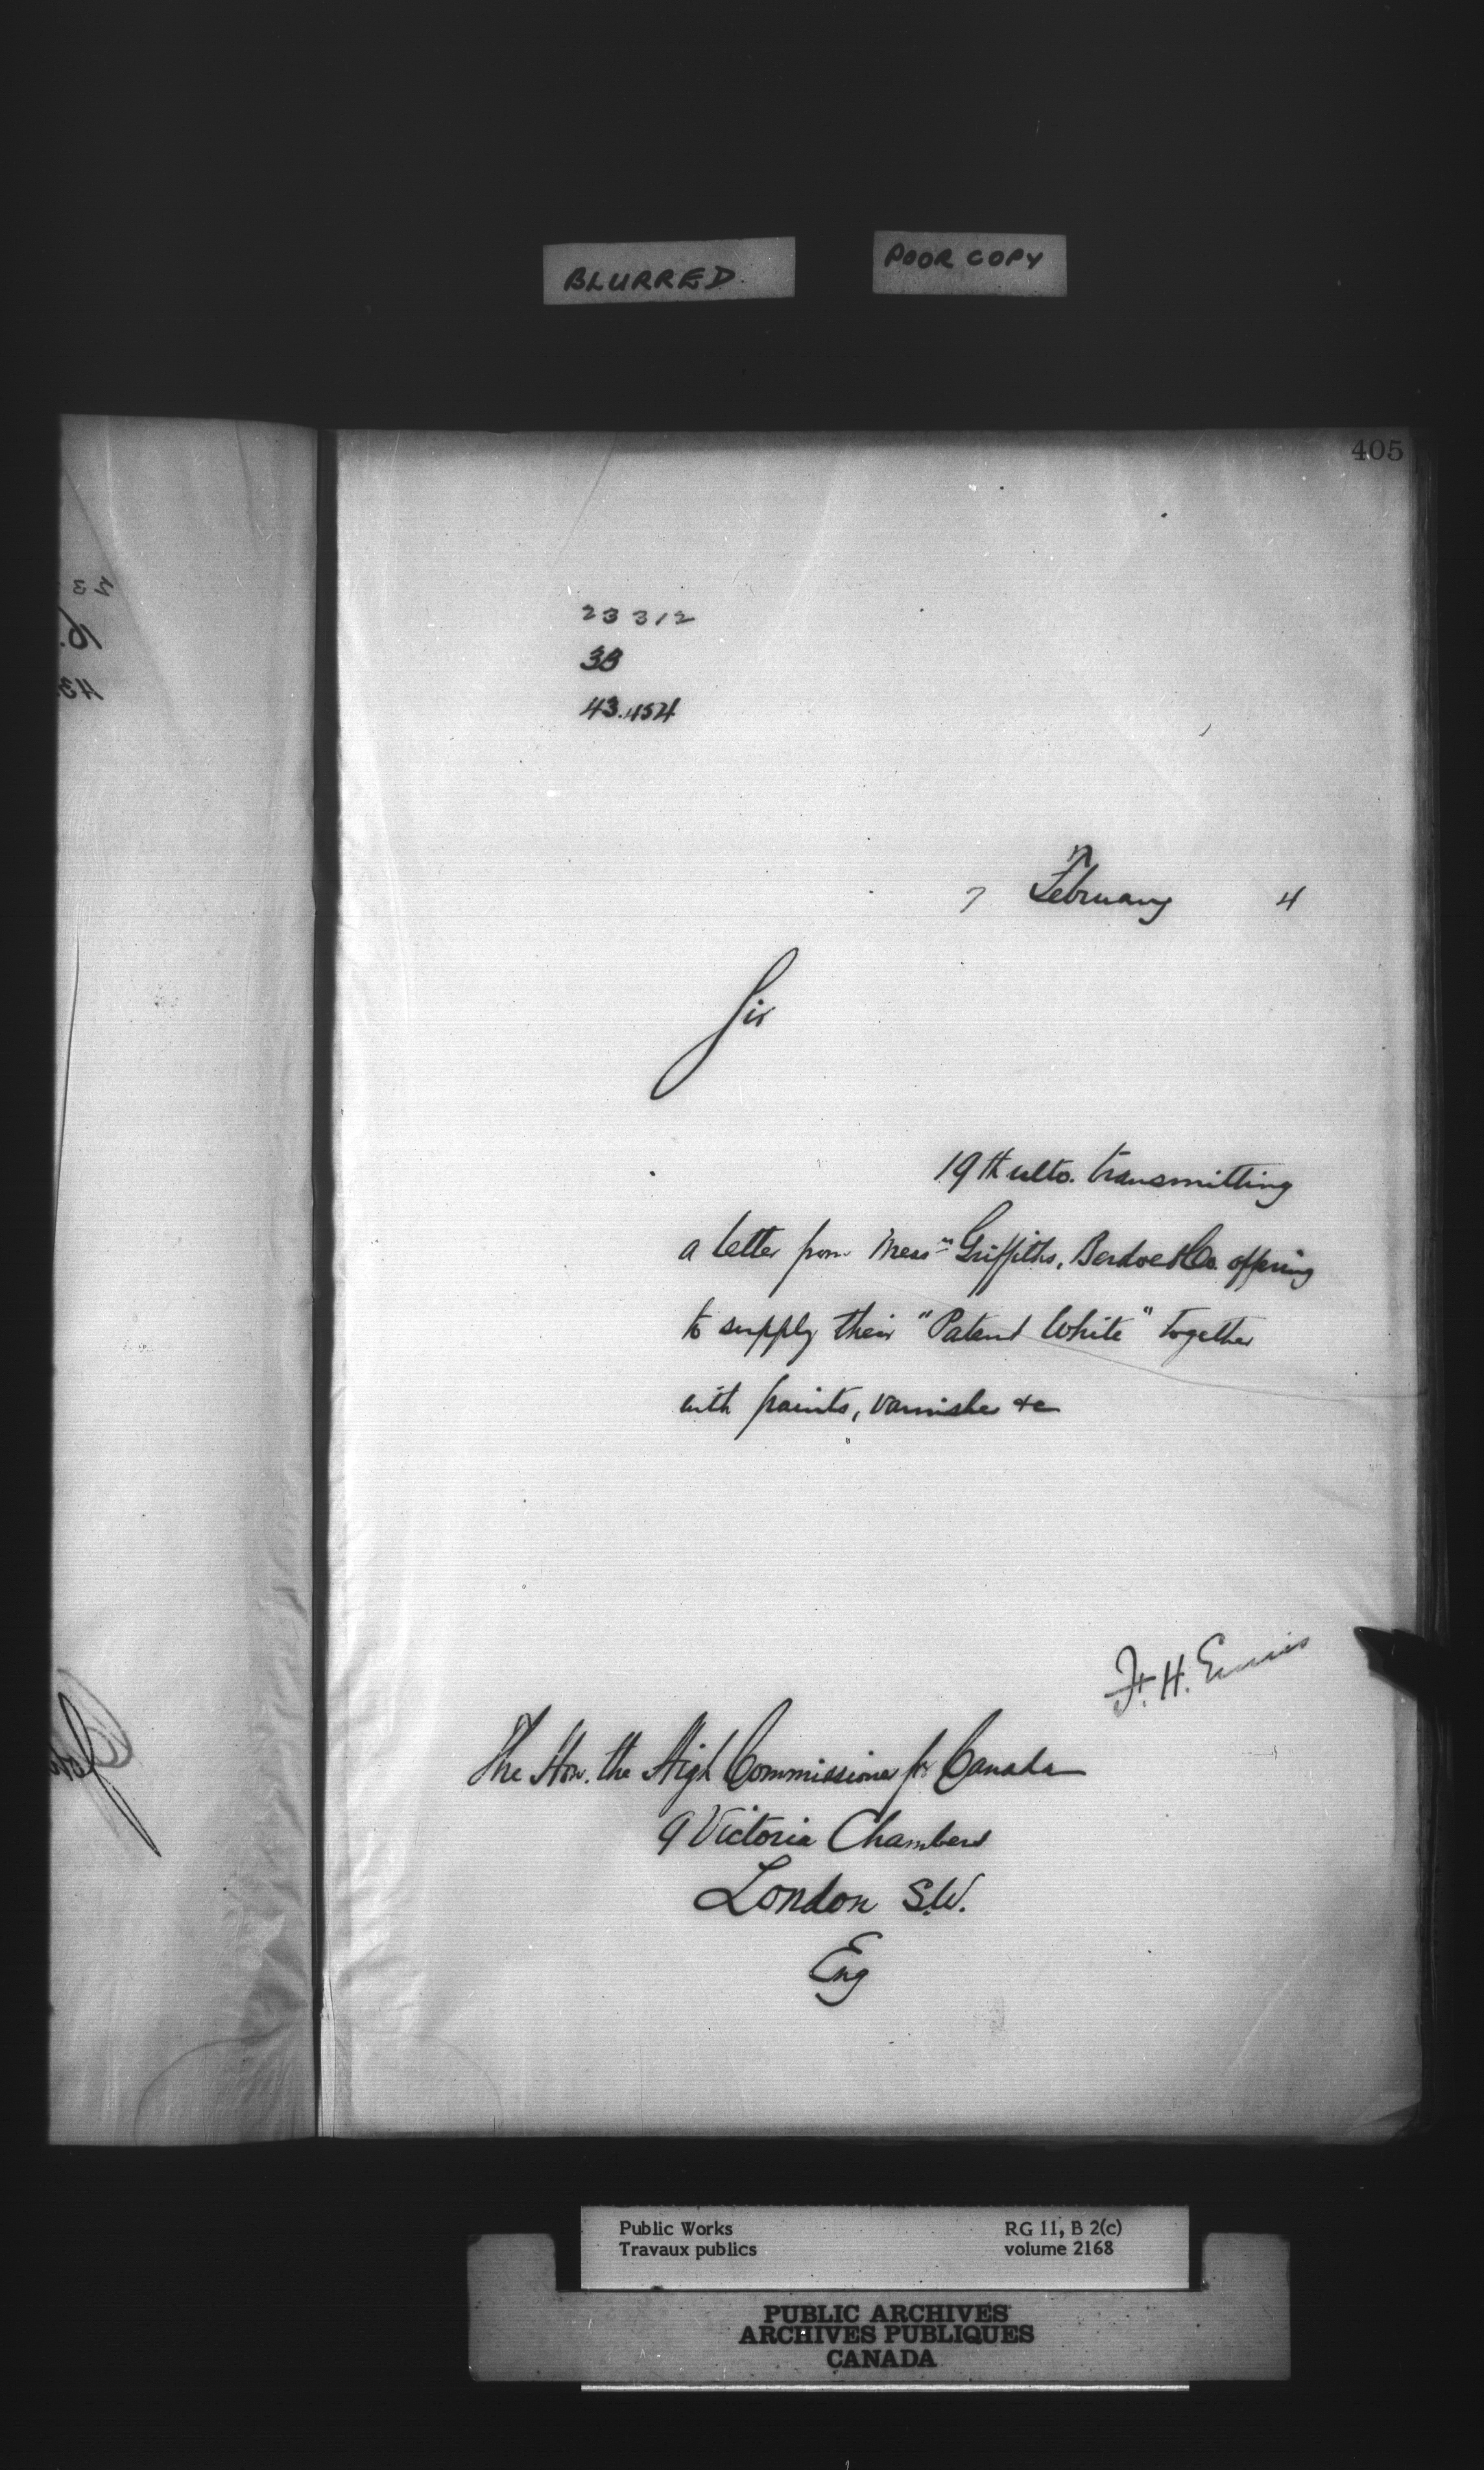 BLURRED
POOR COPY
405
23312
38
43.454
7 February 4
Sir
19th ulto. transmitting
a letter from Messrs Griffiths, Berdoe & Co. offering
to supply their "Patent White" together
with paints, varnishes &c
F. H. Ennis
The Hon. the High Commissioner for Canada
9 Victoria Chambers
London S.W.
Eng
Public Works
Travaux publics
RG 11, B 2(c)
volume 2168
PUBLIC ARCHIVES
ARCHIVES PUBLIQUES
CANADA